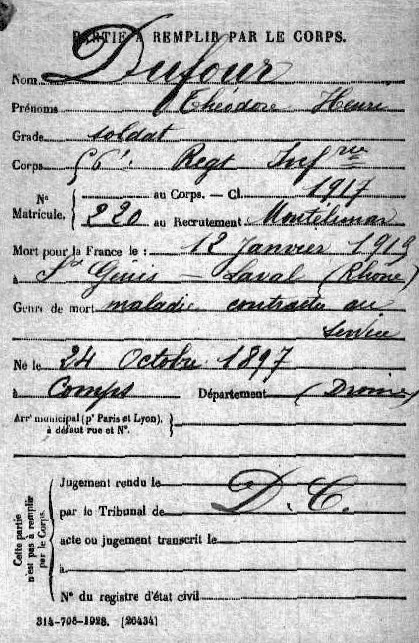 PARTIE À REMPLIR PAR LE CORPS.
Nom Dufour
Prénoms Théodore Henri
Grade soldat
Corps 6e Regt Infrie
Nº Matricule. { au Corps. — Cl. 1917
220 au Recrutement Montélimar
Mort pour la France le : 12 Janvier 1919
à St Génis — Laval (Rhône)
Genre de mort maladie contractée au
service
Né le 24 Octobre 1897
à Comps Département (Drôme)
Arrt municipal (pr Paris et Lyon), }
à défaut rue et Nº.
Cette partie n'est pas à remplir par le Corps.
Jugement rendu le
par le Tribunal de D. C.
acte ou jugement transcrit le
à
Nº du registre d'état civil
314-708-1928. [26434]